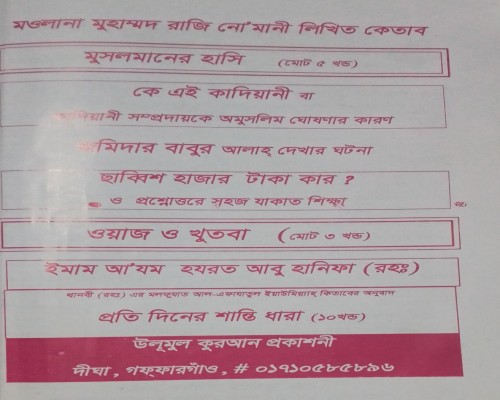 মওলানা মুহাম্মদ রাজি নো'মানী লিখিত কেতাব
মুসলমানের হাসি (মোট ৫ খন্ড)
কে এই কাদিয়ানী বা
কাদিয়ানী সম্প্রদায়কে অমুসলিম ঘোষণার কারণ
জমিদার বাবুর আলাহ্ দেখার ঘটনা
ছাব্বিশ হাজার টাকা কার ?
ও প্রশ্নোত্তরে সহজ যাকাত শিক্ষা
ওয়াজ ও খুতবা (মোট ৩ খন্ড)
ইমাম আ'যম হযরত আবু হানিফা (রহঃ)
থানবী (রহঃ) এর মলফুযাত আল-এফাযাতুল ইয়াউমিয়্যাহ্ কিতাবের অনুবাদ
প্রতি দিনের শান্তি ধারা (১০খন্ড)
উলূমুল কুরআন প্রকাশনী
দীঘা, গফ্ফারগাঁও, # ০১৭১০৫৮৫৮৯৬